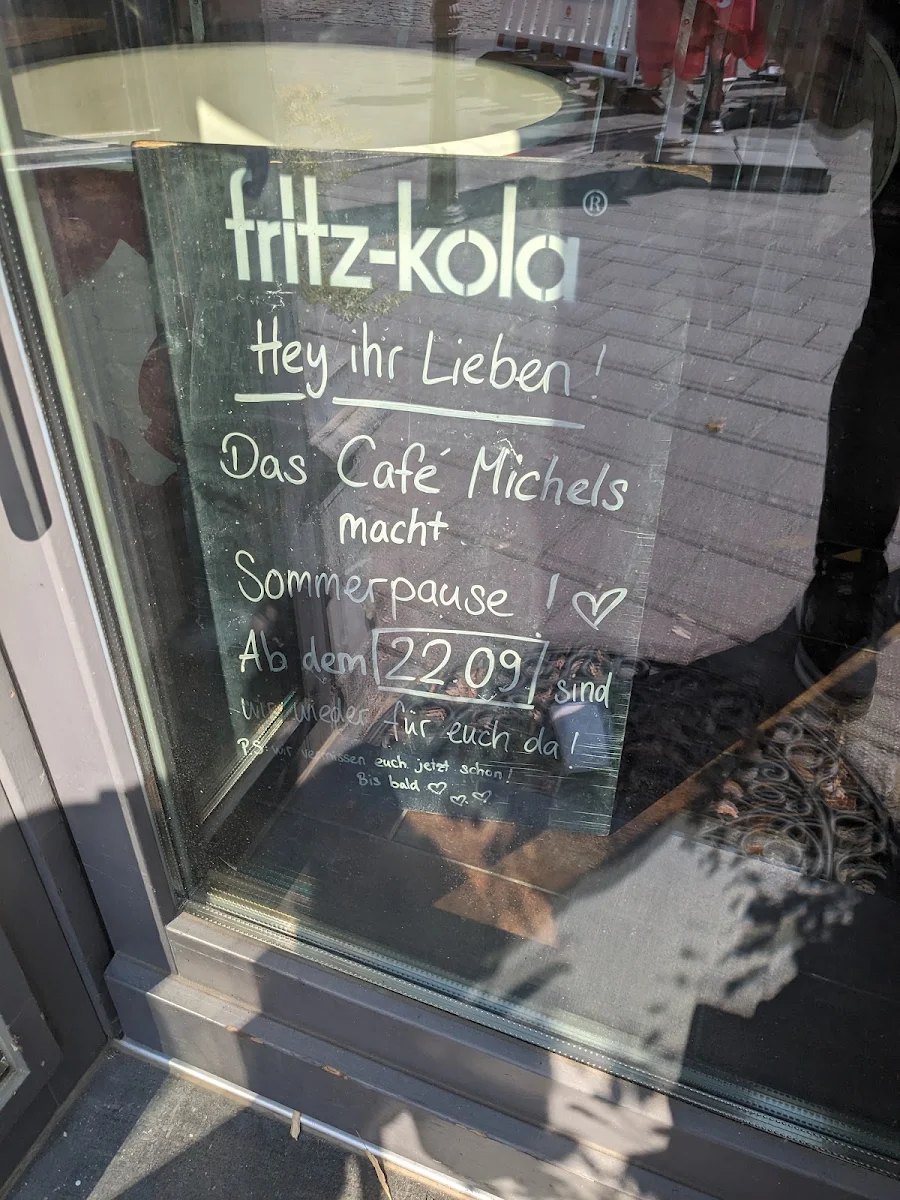 fritz-kola®
Hey ihr Lieben!
Das Café Michels
macht
Sommerpause! ♡
Ab dem 22.09. sind
wir wieder für euch da!
P.S: wir vermissen euch jetzt schon!
Bis bald ♡ ♡ ♡